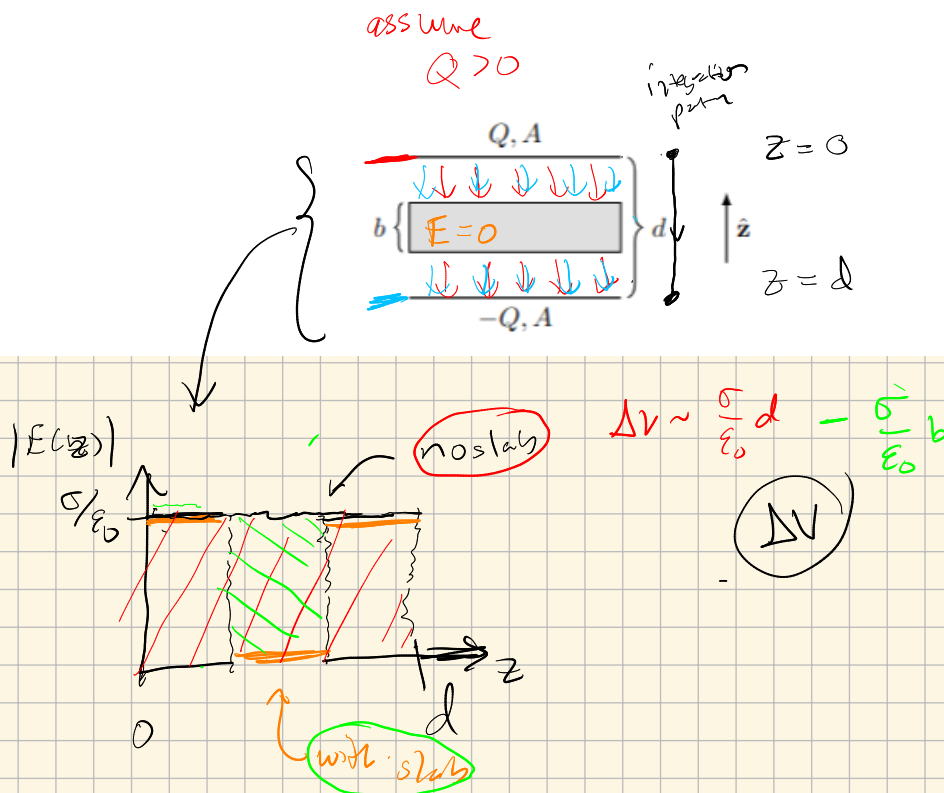 assume
Q > 0
integration
path
Q, A
z = 0
b { E = 0 } d ẑ
z = d
-Q, A
|E(z)|
no slab
ΔV ~ σ/ε₀ d - σ/ε₀ b
σ/ε₀
ΔV
z
0
d
with slab